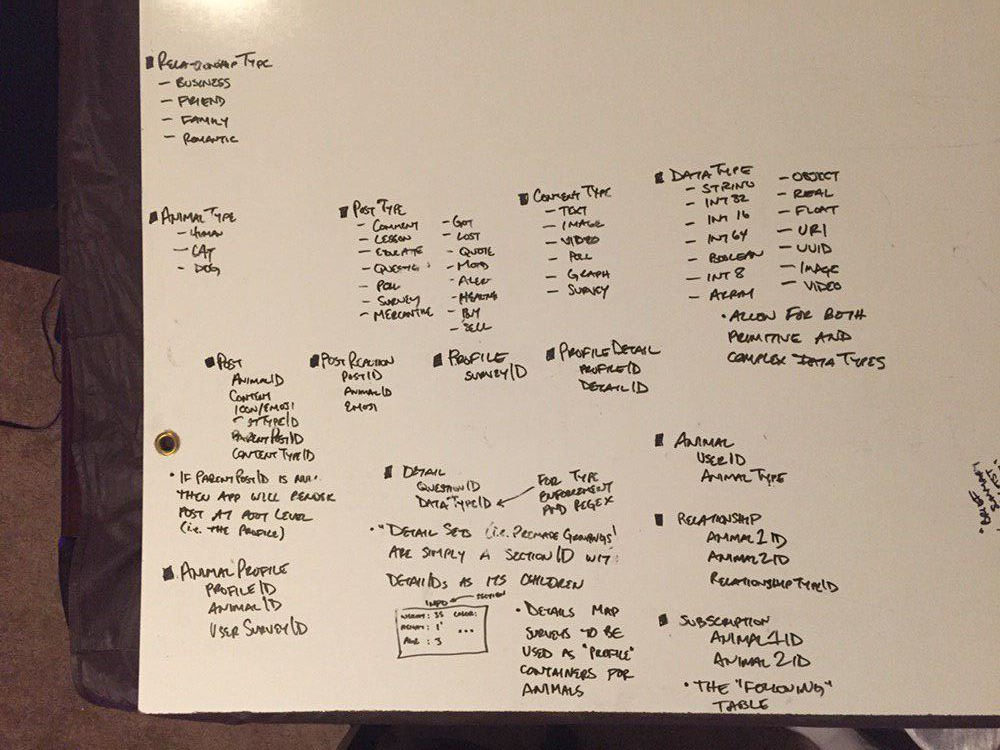 ■ RELATIONSHIP TYPE
– BUSINESS
– FRIEND
– FAMILY
– ROMANTIC
■ ANIMAL TYPE
– HUMAN
– CAT
– DOG
■ POST TYPE
– COMMENT
– LESSON
– EDUCATE
– POLL
– SURVEY
– MERCANTILE
– GOT
– LOST
– QUOTE
– MOOD
– ALERT
– BUY
– SELL
■ CONTENT TYPE
– TEXT
– IMAGE
– VIDEO
– POLL
– GRAPH
– SURVEY
■ DATA TYPE
– STRING
– INT 32
– INT 16
– INT 64
– BOOLEAN
– INT 8
– ARRAY
– OBJECT
– REAL
– FLOAT
– URI
– UUID
– IMAGE
– VIDEO
• ALLOW FOR BOTH
PRIMITIVE AND
COMPLEX DATA TYPES
■ POST
ANIMALID
CONTENT
ICON/EMOJI
PARENTPOSTID
CONTENTTYPEID
• IF PARENTPOSTID IS
THEN APP WILL RENDER
POST AT ROOT LEVEL
(i.e. THE PROFILE)
■ POST REACTION
POSTID
ANIMALID
EMOJI
■ PROFILE
SURVEYID
■ PROFILE DETAIL
PROFILEID
DETAILID
■ DETAIL
QUESTIONID
DATATYPEID
FOR TYPE
ENFORCEMENT
AND REGEX
• "DETAIL SETS (i.e. PREMADE GROUPINGS)
ARE SIMPLY A SECTIONID
DETAILIDs AS ITS CHILDREN
INFO SECTION
WEIGHT: 35 COLOR:
HEIGHT: 1'
AGE: 3 ...
• DETAILS MAP
SURVEYS TO BE
USED AS "PROFILE"
CONTAINERS FOR
ANIMALS
■ ANIMAL PROFILE
PROFILEID
ANIMALID
USERSURVEYID
■ ANIMAL
USERID
ANIMALTYPE
■ RELATIONSHIP
ANIMAL1ID
ANIMAL2ID
RELATIONSHIPTYPEID
■ SUBSCRIPTION
ANIMAL1ID
ANIMAL2ID
• THE "FOLLOWING"
TABLE